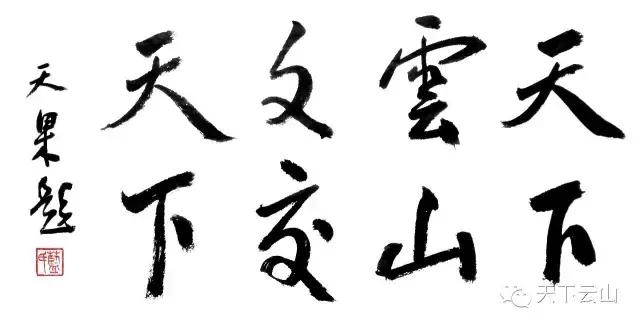 天下
雲山
文交
天下
天果题
天下云山